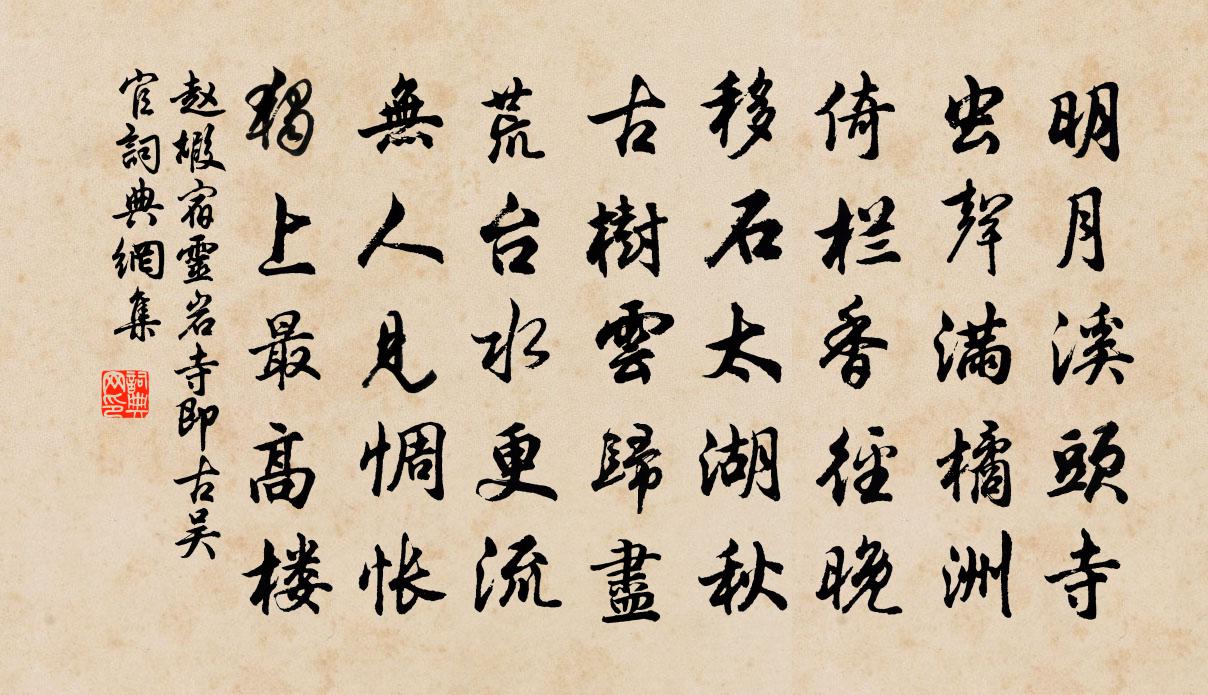 明月溪頭寺
虫聲满橘洲
倚栏香徑晚
移石太湖秋
古樹雲歸盡
荒台水更流
無人見惆怅
獨上最高楼
赵嘏宿靈岩寺即古吴
官詞典網集
詞典
网印